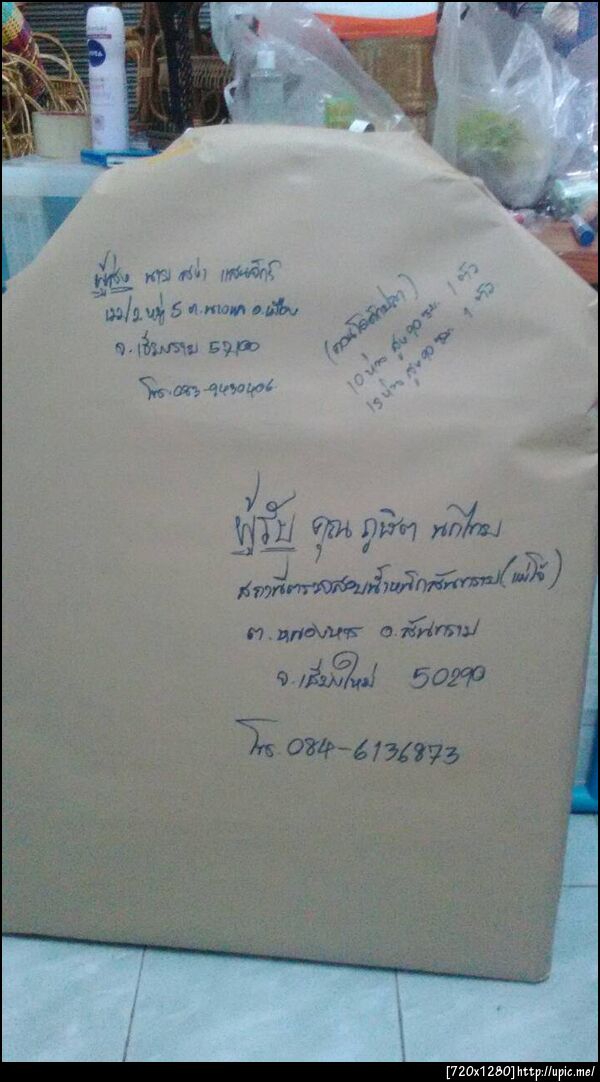 NIVEA
ผู้ส่ง นาย สง่า แสนจักร์
หมู่ 5 ต.นางแล อ.เมือง
จ.เชียงราย 57100
โทร.083-9430406
10 ห่วง สูง 90 ซม. 1 ตัว
15 ห่วง สูง 90 ซม. 1 ตัว
ผู้รับ คุณ ภูษิต
สถานีตรวจสอบน้ำหนักสันทราย (แม่โจ้)
ต.หนองหาร อ.สันทราย
จ.เชียงใหม่ 50290
โทร.084-6136873
[720x1280]http://upic.me/